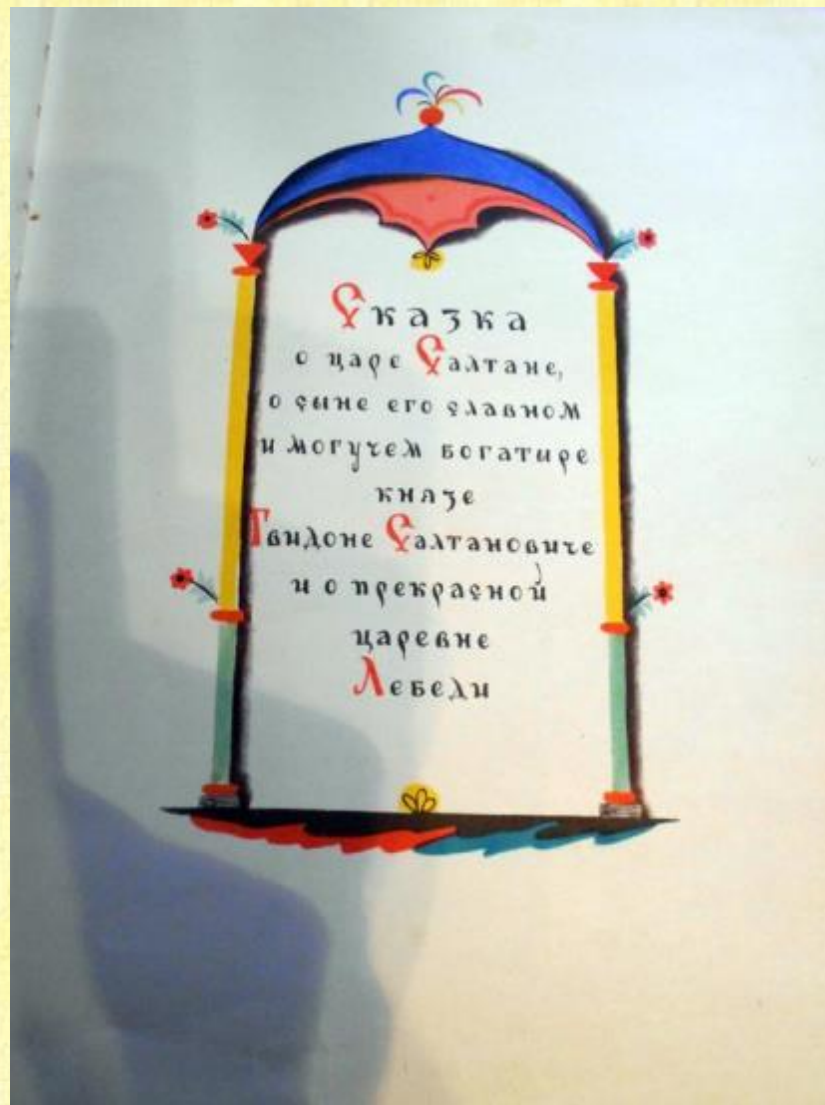 Сказка
о царе Салтане,
о сыне его славном
и могучем богатыре
князе
Гвидоне Салтановиче
и о прекрасной
царевне
Лебеди